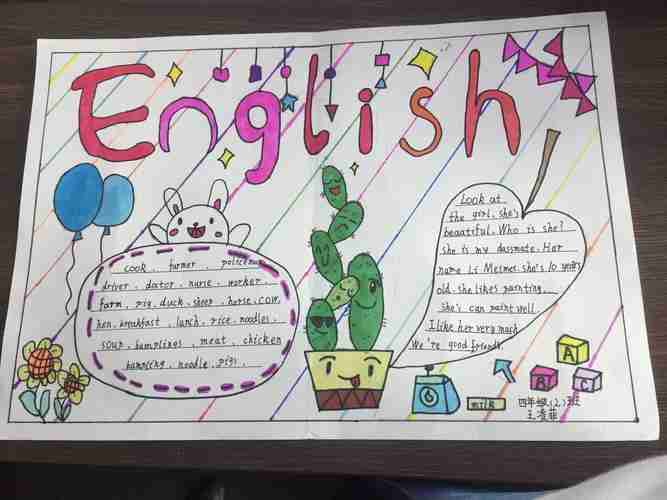 English
cook . furner . policeman
driver . dator . nurse . worker .
farm . pig . duck . sheep . horse . cow .
hen . breakfast . lunch . rice . noodles .
soup . bumplinos . meat . chicken
bumpling . noodle . pigi .
Look at
the girl. she's
beautiful. Who is she?
she is my dassmate. Har
name Li Meimei. she's 10 years
old. she likes panting.
She's can paint well.
I like her very much
We're good friends.
A
B
C
6
milk
四年级(2)班